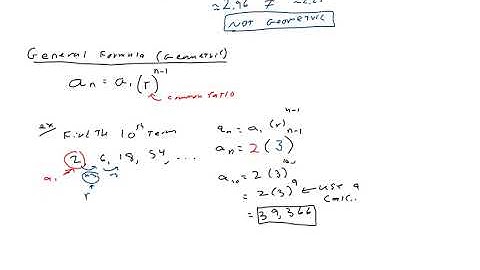 ≈2.96 ≠
NOT GEOMETRIC
General Formula (Geometric)
aₙ = a₁(r)ⁿ⁻¹
common ratio
ex Find the 10th Term
2, 6, 18, 54, ...
a₁
r
aₙ = a₁(r)ⁿ⁻¹
aₙ = 2(3)ⁿ⁻¹
a₁₀ = 2(3)
= 2(3)⁹ ← USE A CALC.
= 39,366